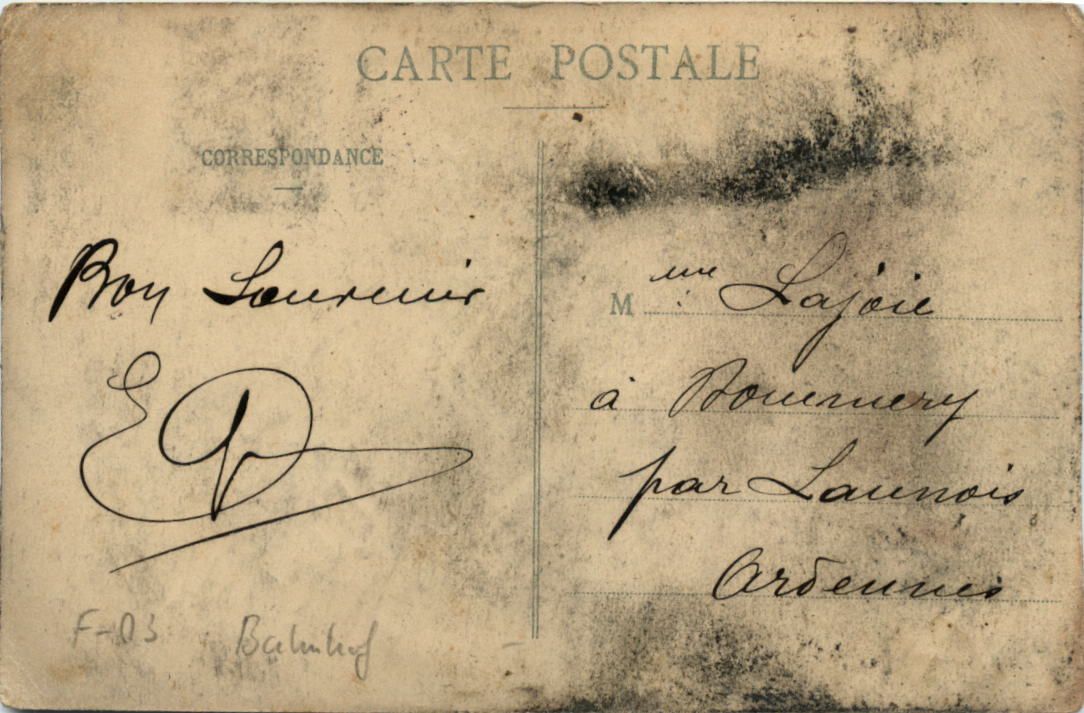 CARTE POSTALE
CORRESPONDANCE
Bon Souvenir
M me Lajoie
à
par Launois
Ardennes
F-03 Bahnhof